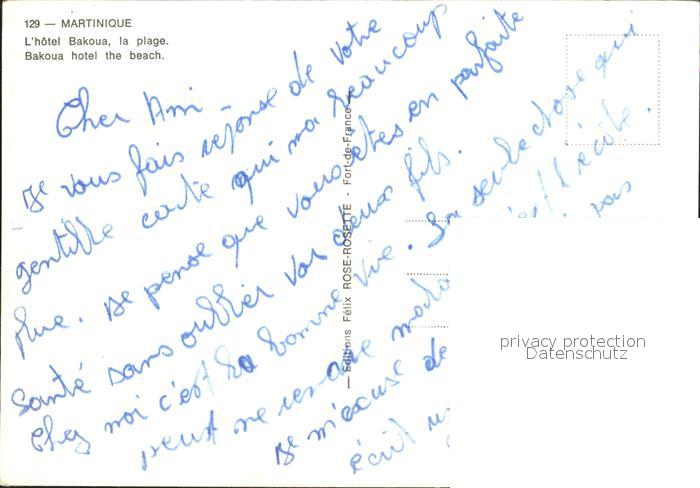 129 — MARTINIQUE
L'hôtel Bakoua, la plage.
Bakoua hotel the beach.
Cher Ami -
Je vous fais réponse de votre
gentille carte qui ma beaucoup
plue. Je pense que vous êtes en parfaite
Santé sans oublier vos deux fils.
Chez moi c'est la bonne vie. La seule chose qui
peut me rendre mala
est l'école.
Je m'excuse de
pas
écrit
— Editions Félix ROSE-ROSETTE - Fort-de-France —
privacy protection
Datenschutz